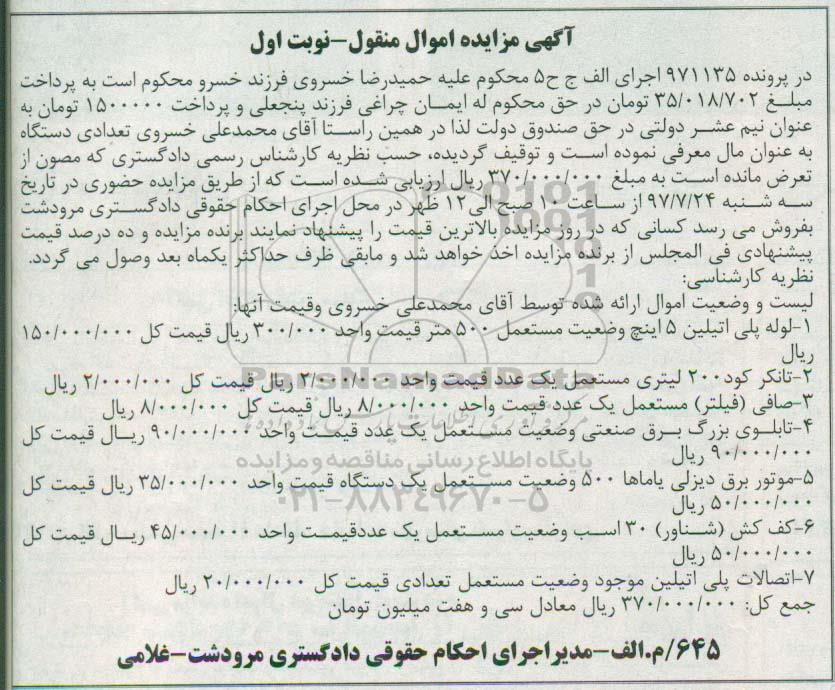 آگهی مزایده اموال منقول-نوبت اول
در پرونده ۹۷۱۱۳۵ اجرای الف ج ح۵ محکوم علیه حمیدرضا خسروی فرزند خسرو محکوم است به پرداخت
مبلغ ۳۵/۰۱۸/۷۰۲ تومان در حق محکوم له ایمان چراغی فرزند پنجعلی و پرداخت ۱۵۰۰۰۰۰ تومان به
عنوان نیم عشر دولتی در حق صندوق دولت لذا در همین راستا آقای محمدعلی خسروی تعدادی دستگاه
به عنوان مال معرفی نموده است و توقیف گردیده، حسب نظریه کارشناس رسمی دادگستری که مصون از
تعرض مانده است به مبلغ ۳۷۰/۰۰۰/۰۰۰ ریال ارزیابی شده است که از طریق مزایده حضوری در تاریخ
سه شنبه ۹۷/۷/۲۴ از ساعت ۱۰ صبح الی۱۲ ظهر در محل اجرای احکام حقوقی دادگستری مرودشت
بفروش می رسد کسانی که در روز مزایده بالاترین قیمت را پیشنهاد نمایند برنده مزایده و ده درصد قیمت
پیشنهادی فی المجلس از برنده مزایده اخذ خواهد شد و مابقی ظرف حداکثر یکماه بعد وصول می گردد.
نظریه کارشناسی:
لیست و وضعیت اموال ارائه شده توسط آقای محمدعلی خسروی وقیمت آنها:
۱-لوله پلی اتیلین ۵ اینچ وضعیت مستعمل ۵۰۰ متر قیمت واحد ۳۰۰/۰۰۰ ریال قیمت کل ۱۵۰/۰۰۰/۰۰۰
ریال
۲-تانکر کود۲۰۰ لیتری مستعمل یک عدد قیمت واحد ۲/۰۰۰/۰۰۰ ریال قیمت کل ۲/۰۰۰/۰۰۰ ریال
۳-صافی (فیلتر) مستعمل یک عدد قیمت واحد ۸/۰۰۰/۰۰۰ ریال قیمت کل ۸/۰۰۰/۰۰۰ ریال
۴-تابلوی بزرگ برق صنعتی وضعیت مستعمل یک عدد قیمت واحد ۹۰/۰۰۰/۰۰۰ ریال قیمت کل
۹۰/۰۰۰/۰۰۰ ریال
۵-موتور برق دیزلی یاماها ۵۰۰ وضعیت مستعمل یک دستگاه قیمت واحد ۳۵/۰۰۰/۰۰۰ ریال قیمت کل
۵۰/۰۰۰/۰۰۰ ریال
۶-کف کش (شناور) ۳۰ اسب وضعیت مستعمل یک عددقیمت واحد ۴۵/۰۰۰/۰۰۰ ریال قیمت کل
۵۰/۰۰۰/۰۰۰ ریال
۷-اتصالات پلی اتیلین موجود وضعیت مستعمل تعدادی قیمت کل ۲۰/۰۰۰/۰۰۰ ریال
جمع کل: ۳۷۰/۰۰۰/۰۰۰ ریال معادل سی و هفت میلیون تومان
۶۴۵/م.الف-مدیراجرای احکام حقوقی دادگستری مرودشت-غلامی
ParsNamadData
پایگاه اطلاع رسانی مناقصه و مزایده
۰۲۱-۸۸۳۴۹۶۷۰-۵